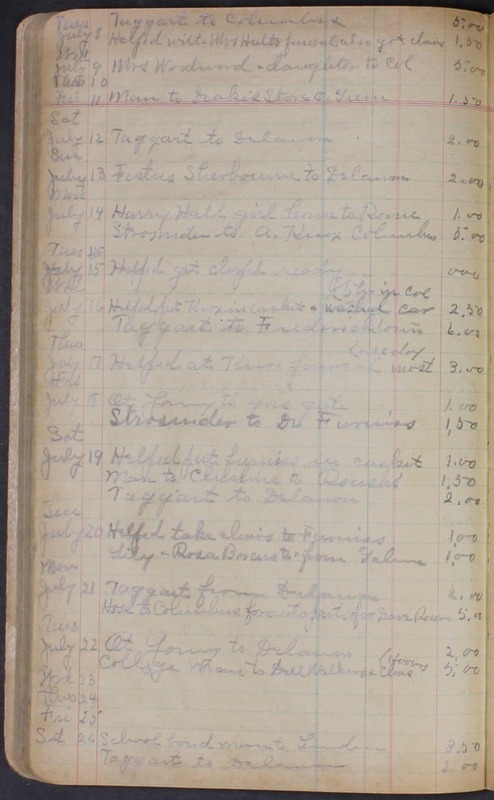 Tues
July 8 Taggart to Columbus 5.00
Helped with Mrs Hults funeral also got chairs 1.50
Wed
July 9 Mrs Woodword + daughter to Col 5.00
Thus 10
Fri 11 Man to Drakes Store 1.50
Sat
July 12 Taggart to Delawon 2.00
Sun
July 13 Festus Sherbourne to Delawon 2.00
Mon
July 14 Harry Hall girl home to Rome 1.00
Strosnider to A. Knox Columbus 5.00
Tues 15
July 15 Helped get ready
Wed
July 16 Helped put Knox in casket + washed car 2.50
in Col
Taggart to Fredericktown 6.00
Thus
July 17 Helped at Knox funeral most 3.00
day
Fri
July 18 Ot Torry to 1.00
Strosnider to Dr Furniss 1.50
Sat
July 19 Helped put furniss in casket 1.00
Man to Cheshire to 1.50
Taggart to Delawon 2.00
Sun
July 20 Helped take chairs to Furniss 1.00
Lily + Rosa to + from Galena 1.00
Mon
July 21 Taggart from Delawon 2.00
to Columbus for auto parts for Dave 5.00
Tues
July 22 Ot Torry to Delawon 2.00
College man to Dell 5.00
Wed 23
Thus 24
Fri 25
Sat 26 School board man to Linden 3.50
Taggart to Delawon 2.00